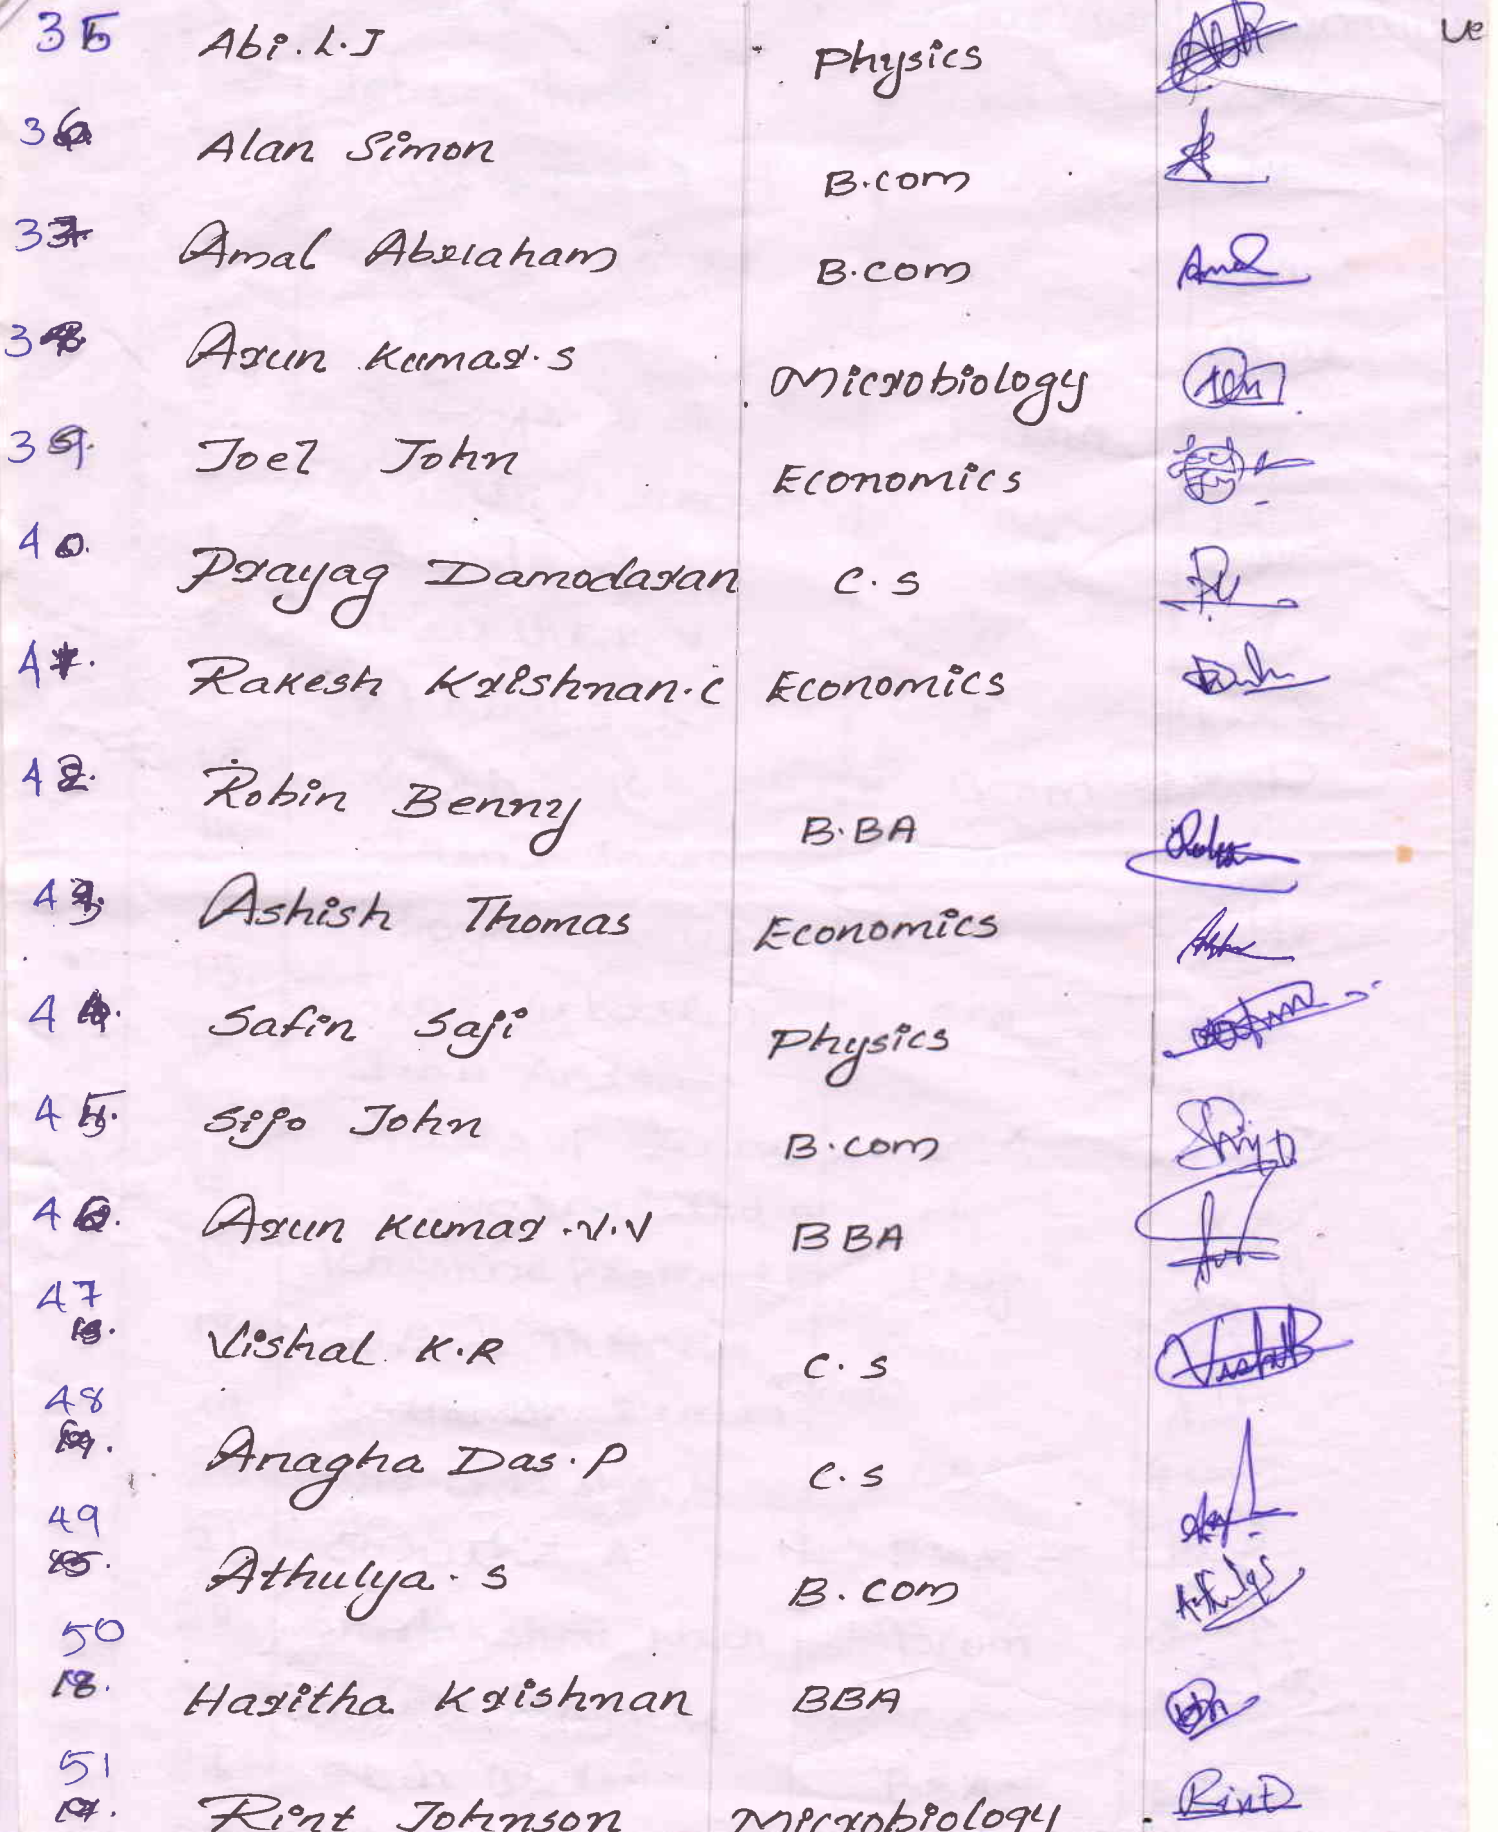 35 Abi. L. J Physics
36 Alan Simon B.com
37 Amal Abraham B.com Amal
38 Arun Kumar. S Microbiology
39. Joel John Economics
40. Prayag Damodaran C. S
41. Rakesh Krishnan. C Economics
42. Robin Benny B.BA
43. Ashish Thomas Economics
44. Safin Saji Physics
45. Sijo John B.com
46. Arun Kumar .V.V BBA
47 Vishal K.R C. S
48 Anagha Das. P C. S
49 Athulya. S B. com
50 Haritha Krishnan BBA
51 Rint Johnson Microbiology Rint